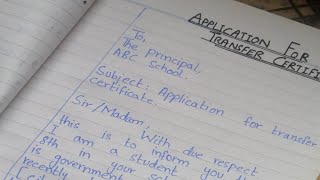 APPLICATION FOR
TRANSFER CERTIFI
To,
The principal,
ABC School.
Subject: Application for transfer
certificate.
Sir/Madam,
With due respect
this is to inform you th
I am a student of
8th in your
is government
recently